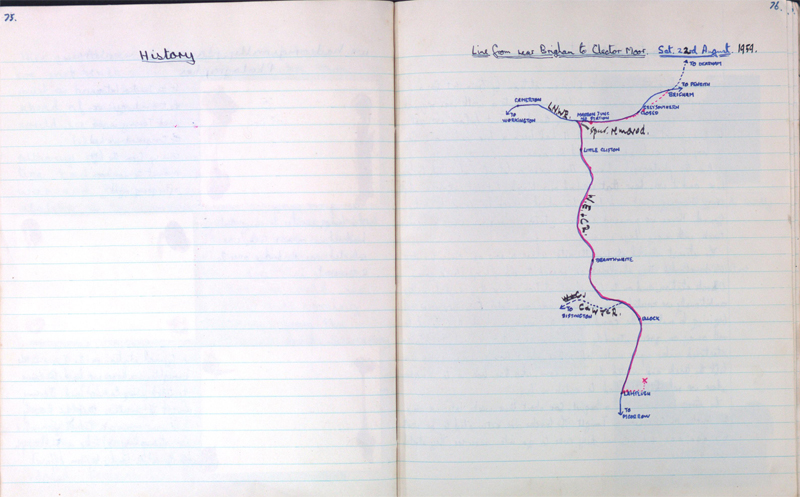 75.
History
76.
Line from near Brigham to Cleator Moor. Sat. 22nd August. 1959.
TO DEARHAM
TO PENRITH
BRIGHAM
CAMERTON
L.N.W.R.
GREYSOUTHERN
CLOSED
MARRON JUNC
NO STATION
TO
WORKINGTON
Spur. removed.
LITTLE CLIFTON
W.C.&E.R.
BRANTHWAITE
TO
DISTINGTON
C&WJLR.
ULLOCK
LAMPLUGH
TO
MOORROW